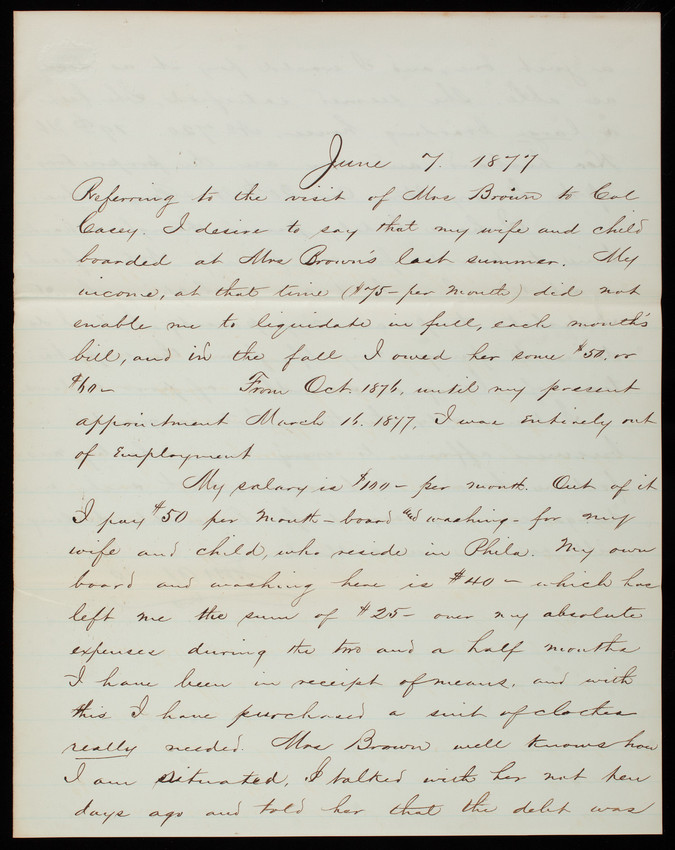 June 7. 1877
Referring to the visit of Mrs Brown to Col
Casey. I desire to say that my wife and child
boarded at Mrs Brown's last summer. My
income, at that time ($75- per month) did not
enable me to liquidate in full, each month's
bill, and in the fall I owed her some $50. or
$60- From Oct. 1876, until my present
appointment March 16. 1877, I was entirely out
of Employment
My salary is $100- per month. Out of it
I pay $50 per Month - board and washing - for my
wife and child, who reside in Phila. My own
board and washing here is $40 - which has
left me the sum of $25- over my absolute
expenses during the two and a half months
I have been in receipt of means, and with
this I have purchased a suit of clothes
really needed. Mrs Brown well knows how
I am situated, I talked with her not ten
days ago and told her that the debt was